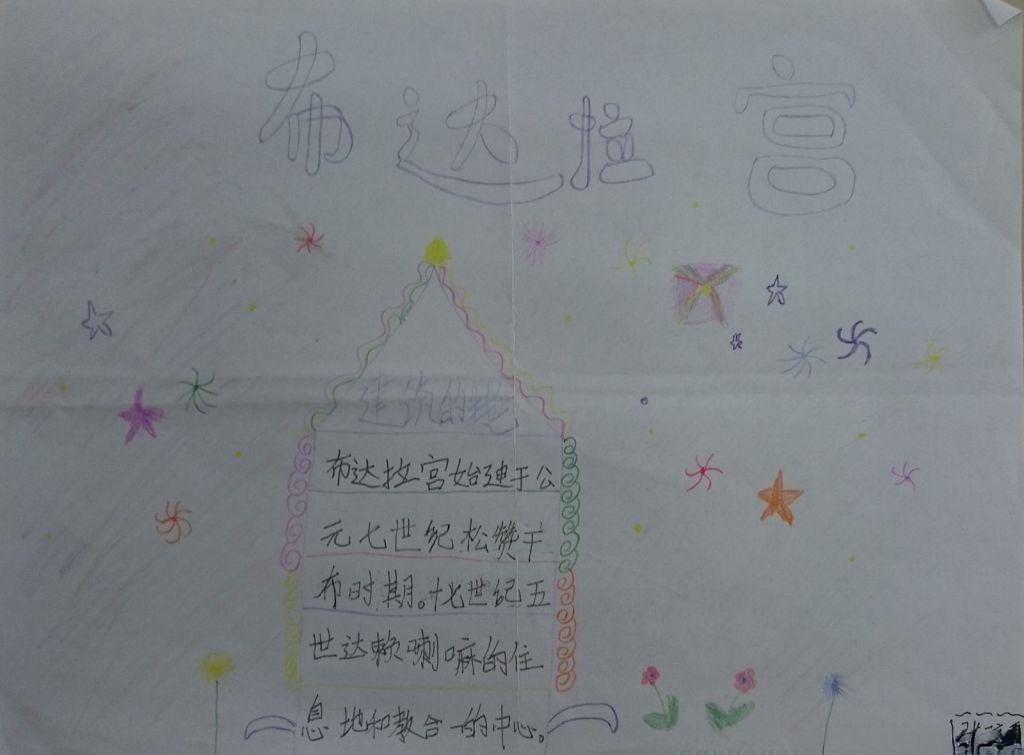 布达拉宫
建筑的
布达拉宫始建于公
元七世纪松赞干
布时期。十七世纪五
世达赖喇嘛的住
息地和教合一的中心。